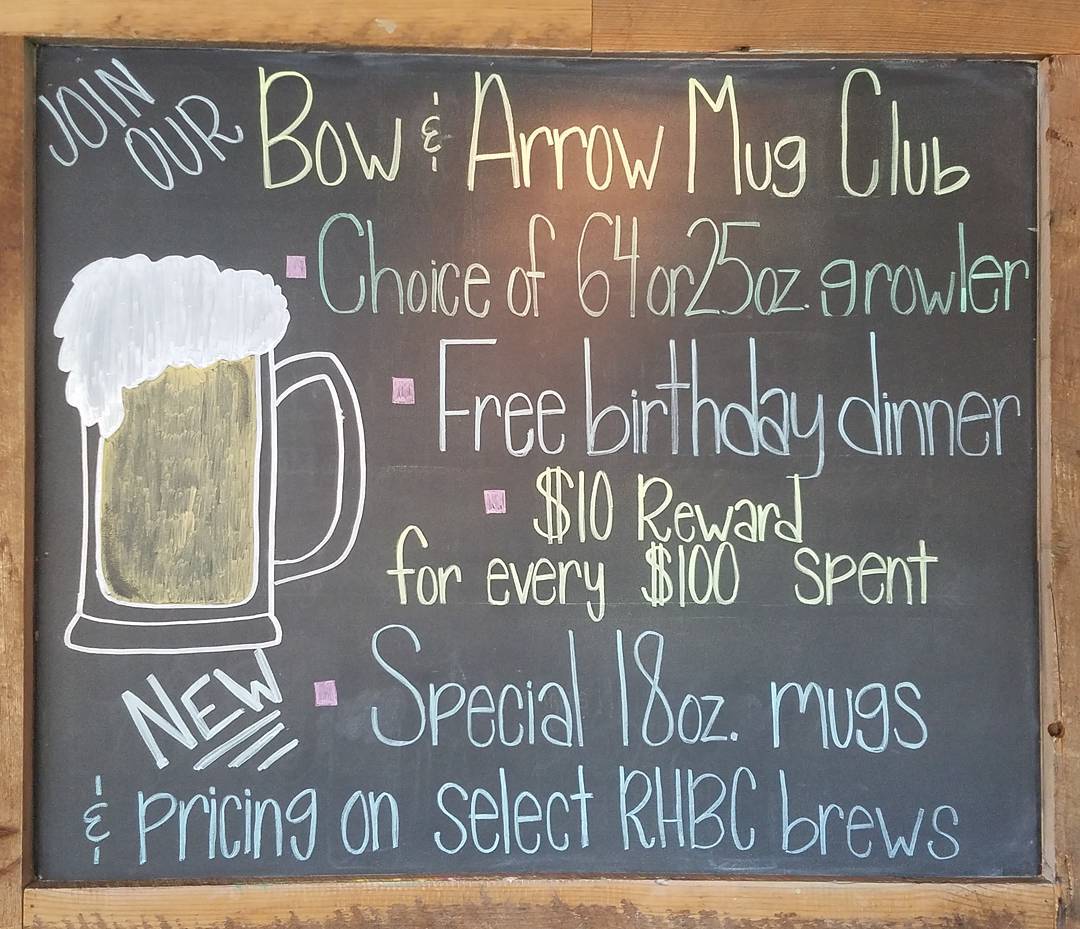 JOIN OUR Bow & Arrow Mug Club
Choice of 64 or 25oz. growler
Free birthday dinner
$10 Reward
for every $100 spent
NEW Special 18oz. mugs
& pricing on select RHBC brews